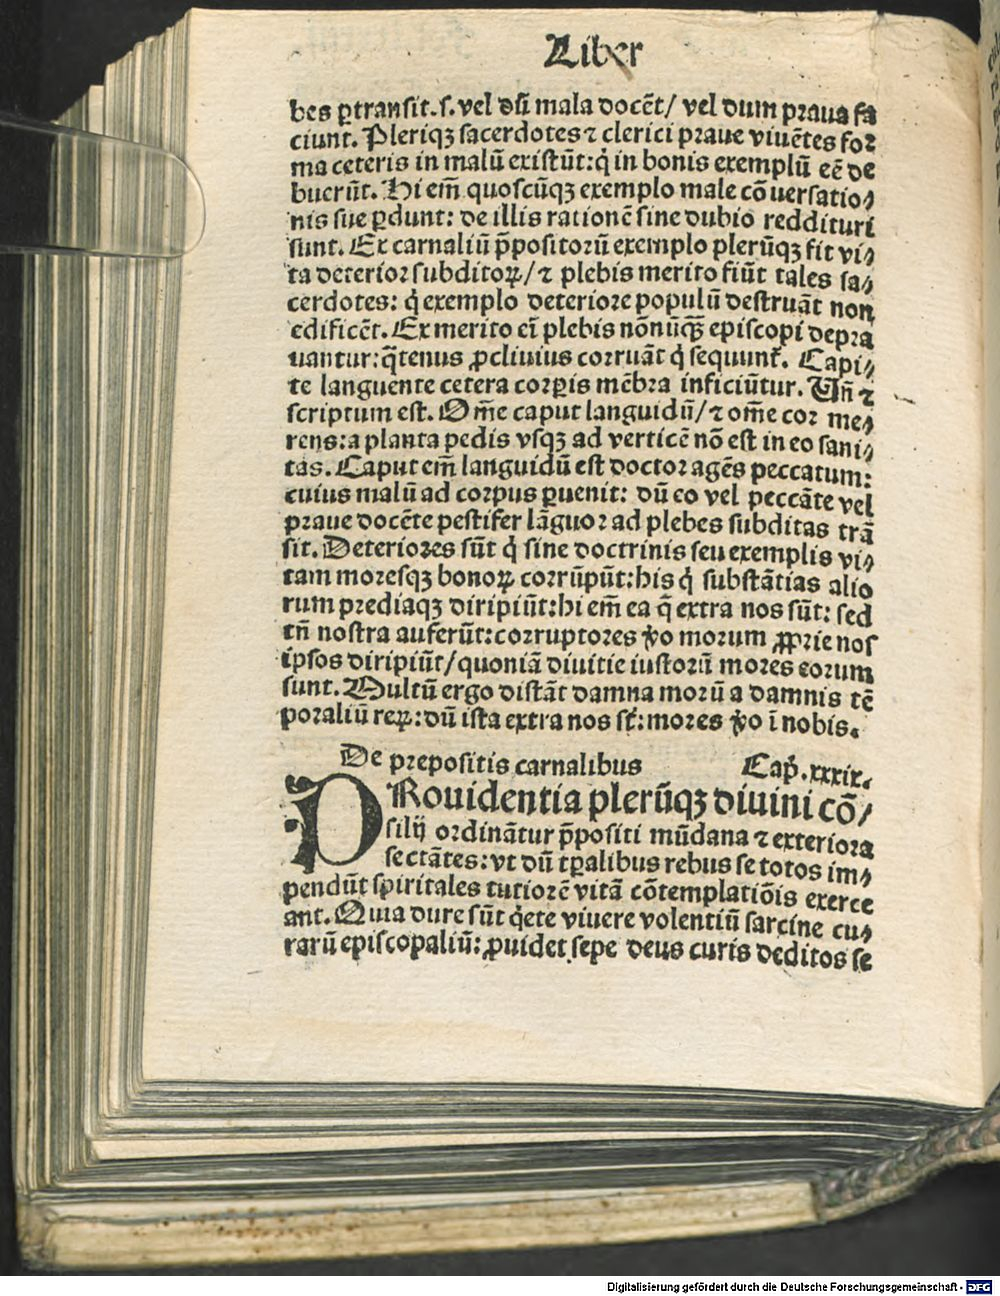 Liber
bes ꝑtransit.s.vel dũ mala docẽt/ vel dum praua fa
ciunt. Pleriqꝫ sacerdotes ⁊ clerici praue viuẽtes for
ma ceteris in malũ existũt: q̇ in bonis exemplũ eẽ de
buerũt. Hi em̃ quoscũqꝫ exemplo male cõuersatio⸗
nis sue ꝑdunt: de illis rationẽ sine dubio reddituri
sunt. Ex carnaliũ p̃positorũ exemplo plerũqꝫ fit vi⸗
ta deterior subditoꝝ/⁊ plebis merito fiũt tales sa⸗
cerdotes: q̇ exemplo deteriore populũ destruãt non
edificẽt. Ex merito eĩ plebis nõnũqꝫ episcopi depra
uantur: q̃tenus ꝓcliuius corruãt q̇ sequunt̃. Capi⸗
te languente cetera corꝑis mẽbra inficiũtur. Uñ ⁊
scriptum est. Om̃e caput languidũ/⁊ om̃e cor me⸗
rens: a planta pedis vsqꝫ ad verticẽ nõ est in eo sani⸗
tas. Caput em̃ languidũ est doctor agẽs peccatum:
cuius malũ ad corpus ꝑuenit: dũ eo vel peccãte vel
praue docẽte pestifer lãguor ad plebes subditas trã
sit. Deteriores sũt q̇ sine doctrinis seu exemplis vi⸗
tam moresqꝫ bonoꝝ corrũpũt: his q̇ substãtias alio
rum prediaqꝫ diripiũt: hi em̃ ea q̃ extra nos sũt: sed
tñ nostra auferũt: corruptores v̊o morum ꝓprie nos
ipsos diripiũt/quoniã diuitie iustorũ mores eorum
sunt. Multũ ergo distãt damna morũ a damnis tẽ
poraliũ reꝝ: dũ ista extra nos st̃: mores v̊o ĩ nobis.
De prepositis carnalibus Cap̃.xxxix.
PRouidentia plerũqꝫ diuini cõ⸗
silij ordinãtur p̃positi mũdana ⁊ exteriora
sectãtes: vt dũ tꝑalibus rebus se totos im⸗
pendũt spiritales tutiorẽ vitã cõtemplatiõis exerce
ant. Quia dure sũt q̇ete viuere volentiũ sarcine cu⸗
rarũ episcopaliũ: ꝓuidet sepe deus curis deditos se
Digitalisierung gefördert durch die Deutsche Forschungsgemeinschaft - DFG